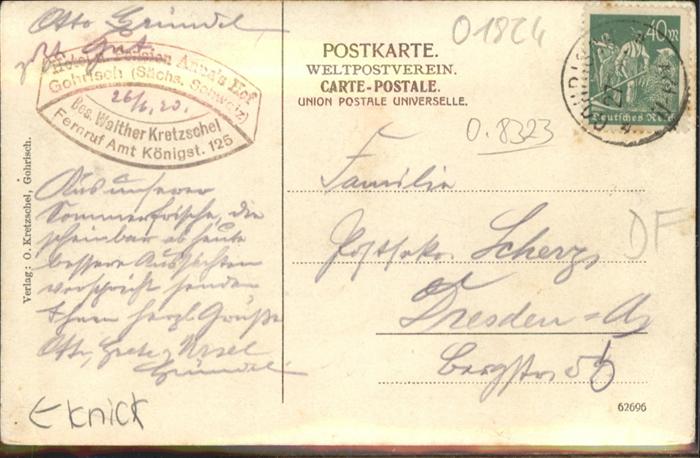 Otto Gründel
z. Zt. Gut
Hotel u. Pension Anna's Hof
Gohrisch (Sächs. Schweiz)
26/6. 20.
Bes. Walther Kretzschel
Fernruf Amt Königst. 125
Aus unserer
Sommerfrische, die
scheinbar ab heute
bessere Aussichten
verspricht senden
Ihnen herzl. Grüße
Otto, Grete, Ursel
Gründel
E knick
Verlag: O. Kretzschel, Gohrisch.
POSTKARTE.
WELTPOSTVEREIN.
CARTE-POSTALE.
UNION POSTALE UNIVERSELLE.
01824
0.8323
40
Deutsches Reich
Familie
Postsekr. Scherz,
Dresden-A,
Bergstr. 56
DF
62696